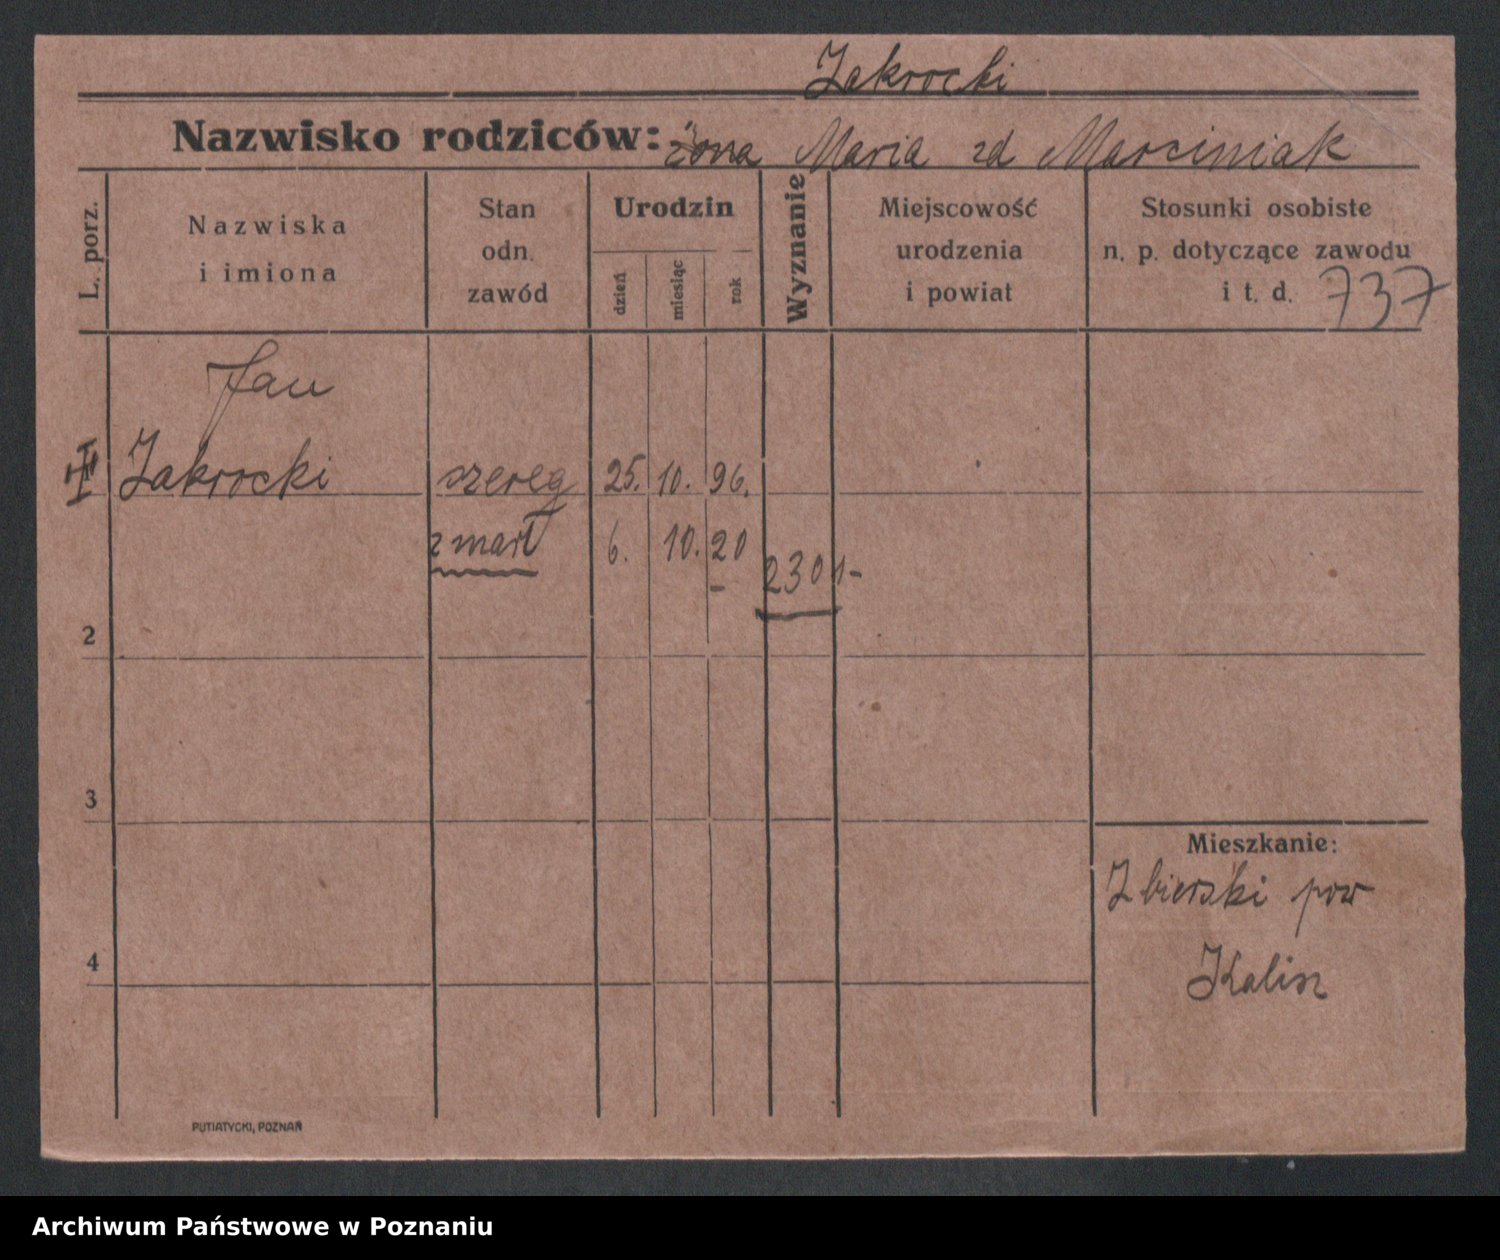 Zakrocki
Nazwisko rodziców: żona Maria zd Marciniak
L. porz.
Nazwiska
i imiona
Stan
odn.
zawód
Urodzin
dzień
miesiąc
rok
Wyznanie
Miejscowość
urodzenia
i powiat
Stosunki osobiste
n. p. dotyczące zawodu
i t. d. 737
Jan
Zakrocki szereg 25. 10. 96.
zmarł 6. 10. 20
230 1-
2
3
4
Mieszkanie:
Zbierski pow
Kalisz
PUTIATYCKI, POZNAŃ
Archiwum Państwowe w Poznaniu